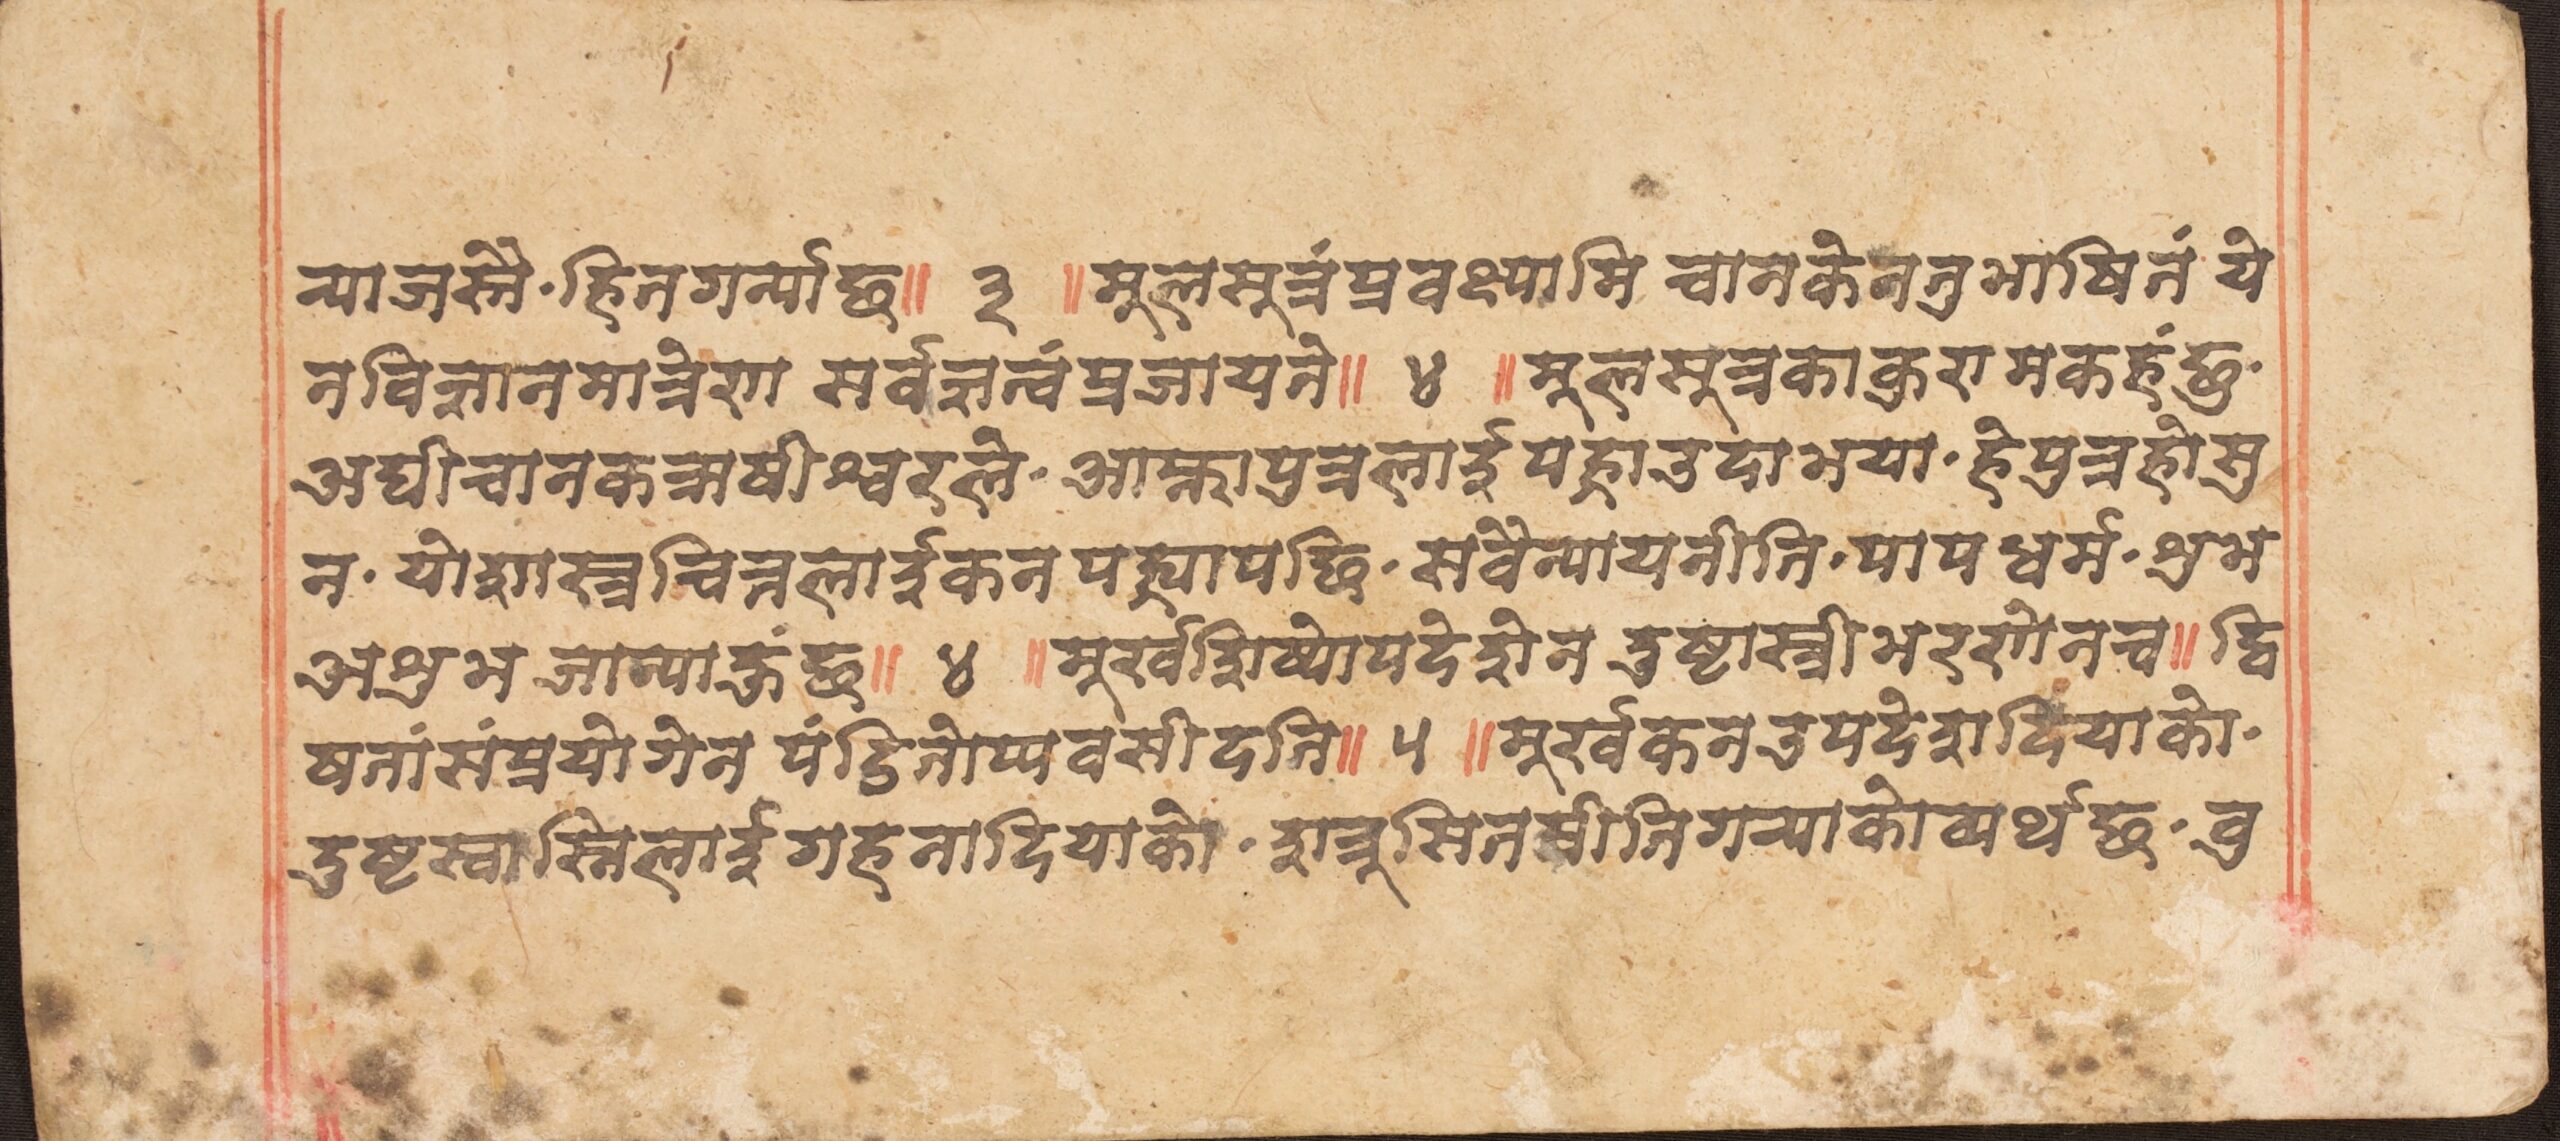 न्याजस्तै॰हितगर्न्याछ॥ ३ ॥मुलसुत्रंप्रवक्ष्यामि चानकेनतुभाषितं ये
नविज्ञानमात्रेण सर्वज्ञत्वंप्रजायते॥ ४ ॥मुलसुत्रकाकुरामकहंछु॰
अघीचानकऋषीश्वरले॰आफ्नापुत्रलाईपह्राउदाभया॰हेपुत्रहोसु
न॰योशास्त्रचित्तलाईकनपह्र्यापछि॰सवैन्यायनीति॰पापधर्म॰शुभ
अशुभ जान्याहुंछ॥ ४ ॥मुर्खशिष्योपदेशेन दुष्टास्त्रीभरणेनच॥द्वि
षतांसंप्रयोगेन पंडितोप्यवसीदति॥ ५ ॥मुर्खकनउपदेशदियाको॰
दुष्टस्वास्निलाईगहनादियाको॰शत्रुसितप्रीतिगर्‍याकोव्यर्थछ॰वु